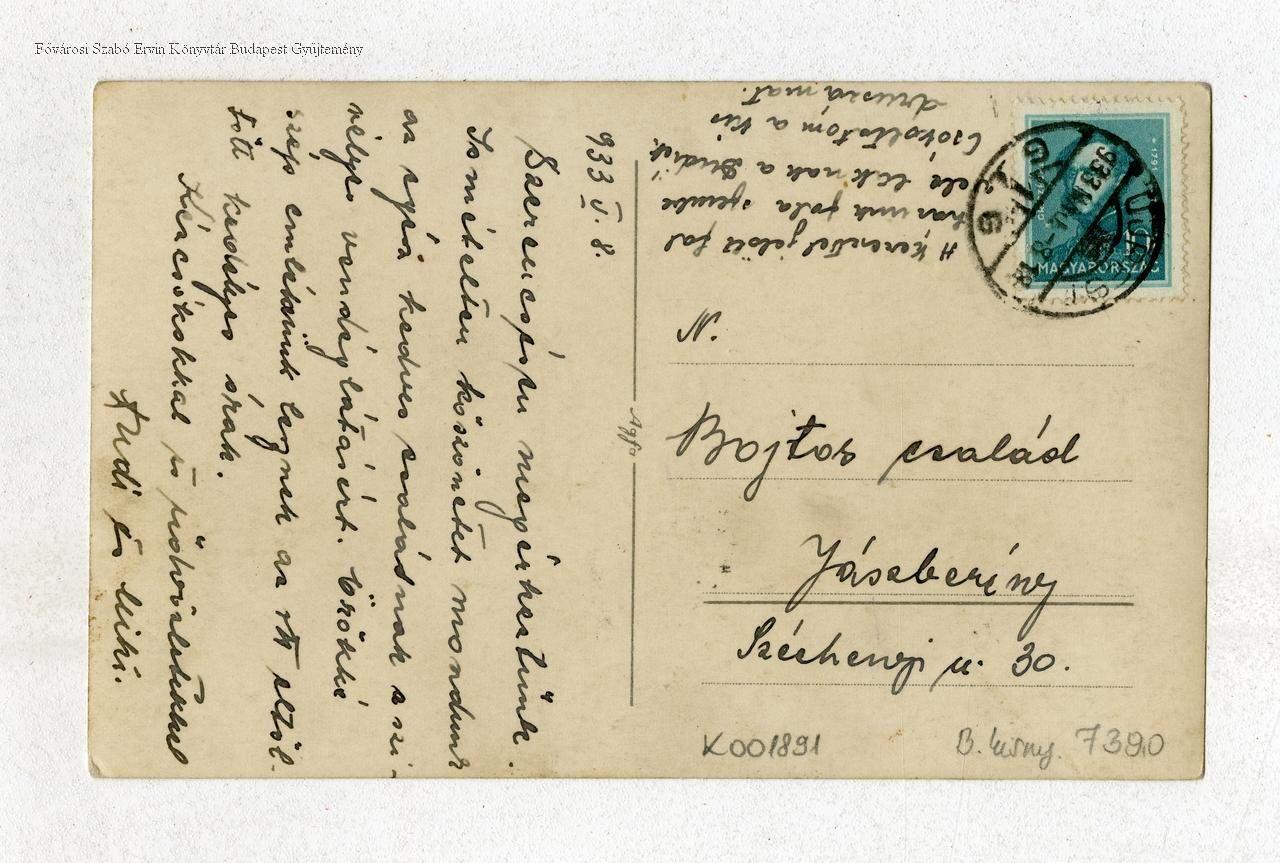 Fővárosi Szabó Ervin Könyvtár Budapest Gyűjtemény
933 V. 8.
Szerencsésen megérkeztünk.
Ismételten köszönetet mondunk
az egész kedves családnak a szi-
vélyes vendéglátásért. Örökké
szép emlékünk lesznek az ott eltöl-
tött kedélyes órák.
Kézcsókokkal és üdvözletekkel
Rudi és Miki.
A kereszttel jelölt fal
Csókoltatom a kis
druszámat.
MAGYARORSZÁG
Agfa
N.
Bojtos család
Jászberény
Széchenyi u. 30.
K001891
7390